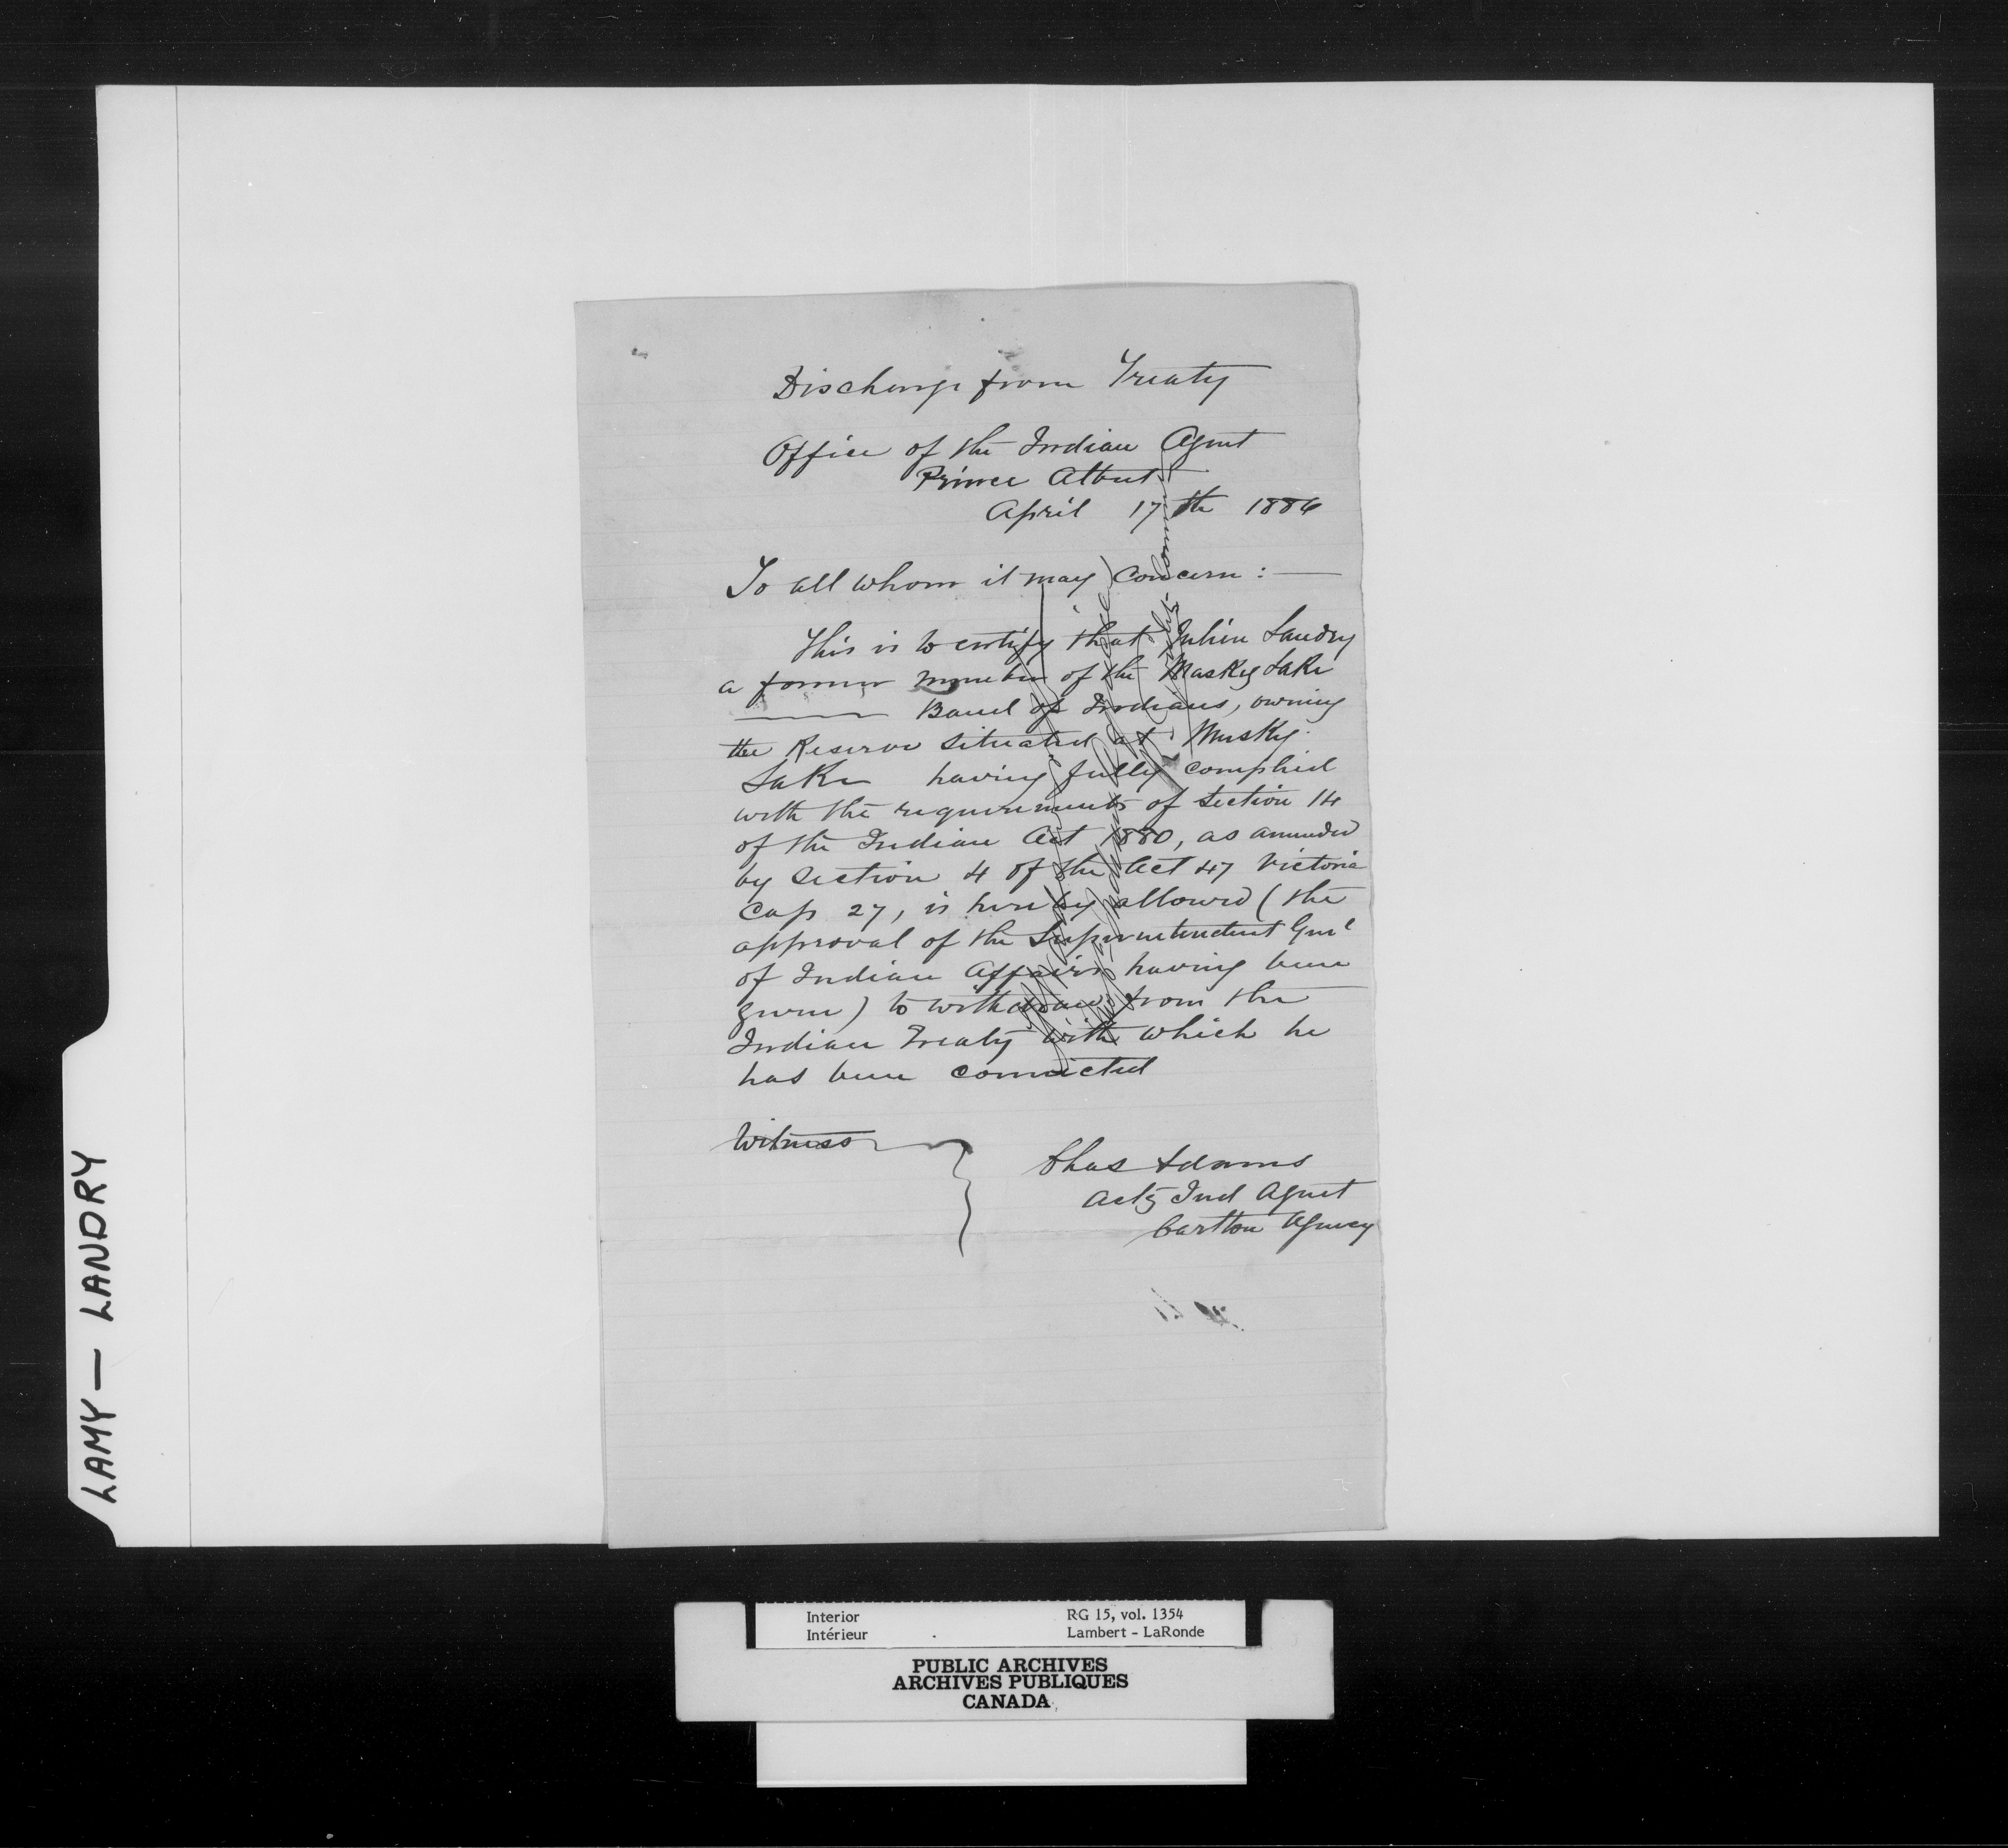 Discharge from Treaty
Office of the Indian Agent
Prince Albert
April 17th 1886
To all whom it may concern: —
This is to certify that Julien Landry
a former member of the Maskeg Lake
Band of Indians, owning
the Reserve situated at Muskeg
Lake having fully complied
with the requirements of Section 14
of the Indian Act 1880, as amended
by Section 4 of the Act 47 Victoria
Cap 27, is hereby allowed (the
approval of the Superintendent Genl
of Indian Affairs having been
given) to withdraw from the
Indian Treaty with which he
has been connected
Witness
Chas Adams
Actg Ind Agent
Carlton Agency
LAMY — LANDRY
Interior
Intérieur
RG 15, vol. 1354
Lambert - LaRonde
PUBLIC ARCHIVES
ARCHIVES PUBLIQUES
CANADA